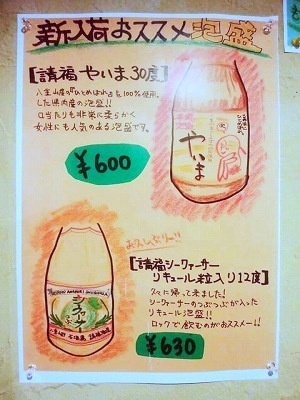 新入荷おススメ泡盛
【請福やいま30度】
八重山産の『ひとめぼれ』を100%使用。
した県内産の泡盛!!
口当たりも非常に柔らかく
女性にも人気のある泡盛です。
¥600
やいま
お久しぶりでーす!
【請福シークァーサー
リキュール粒入り12度】
久々に帰って来ました!
シークァーサーのつぶつぶが入った
リキュール泡盛!!
ロックで飲むのがおススメー!!
¥630